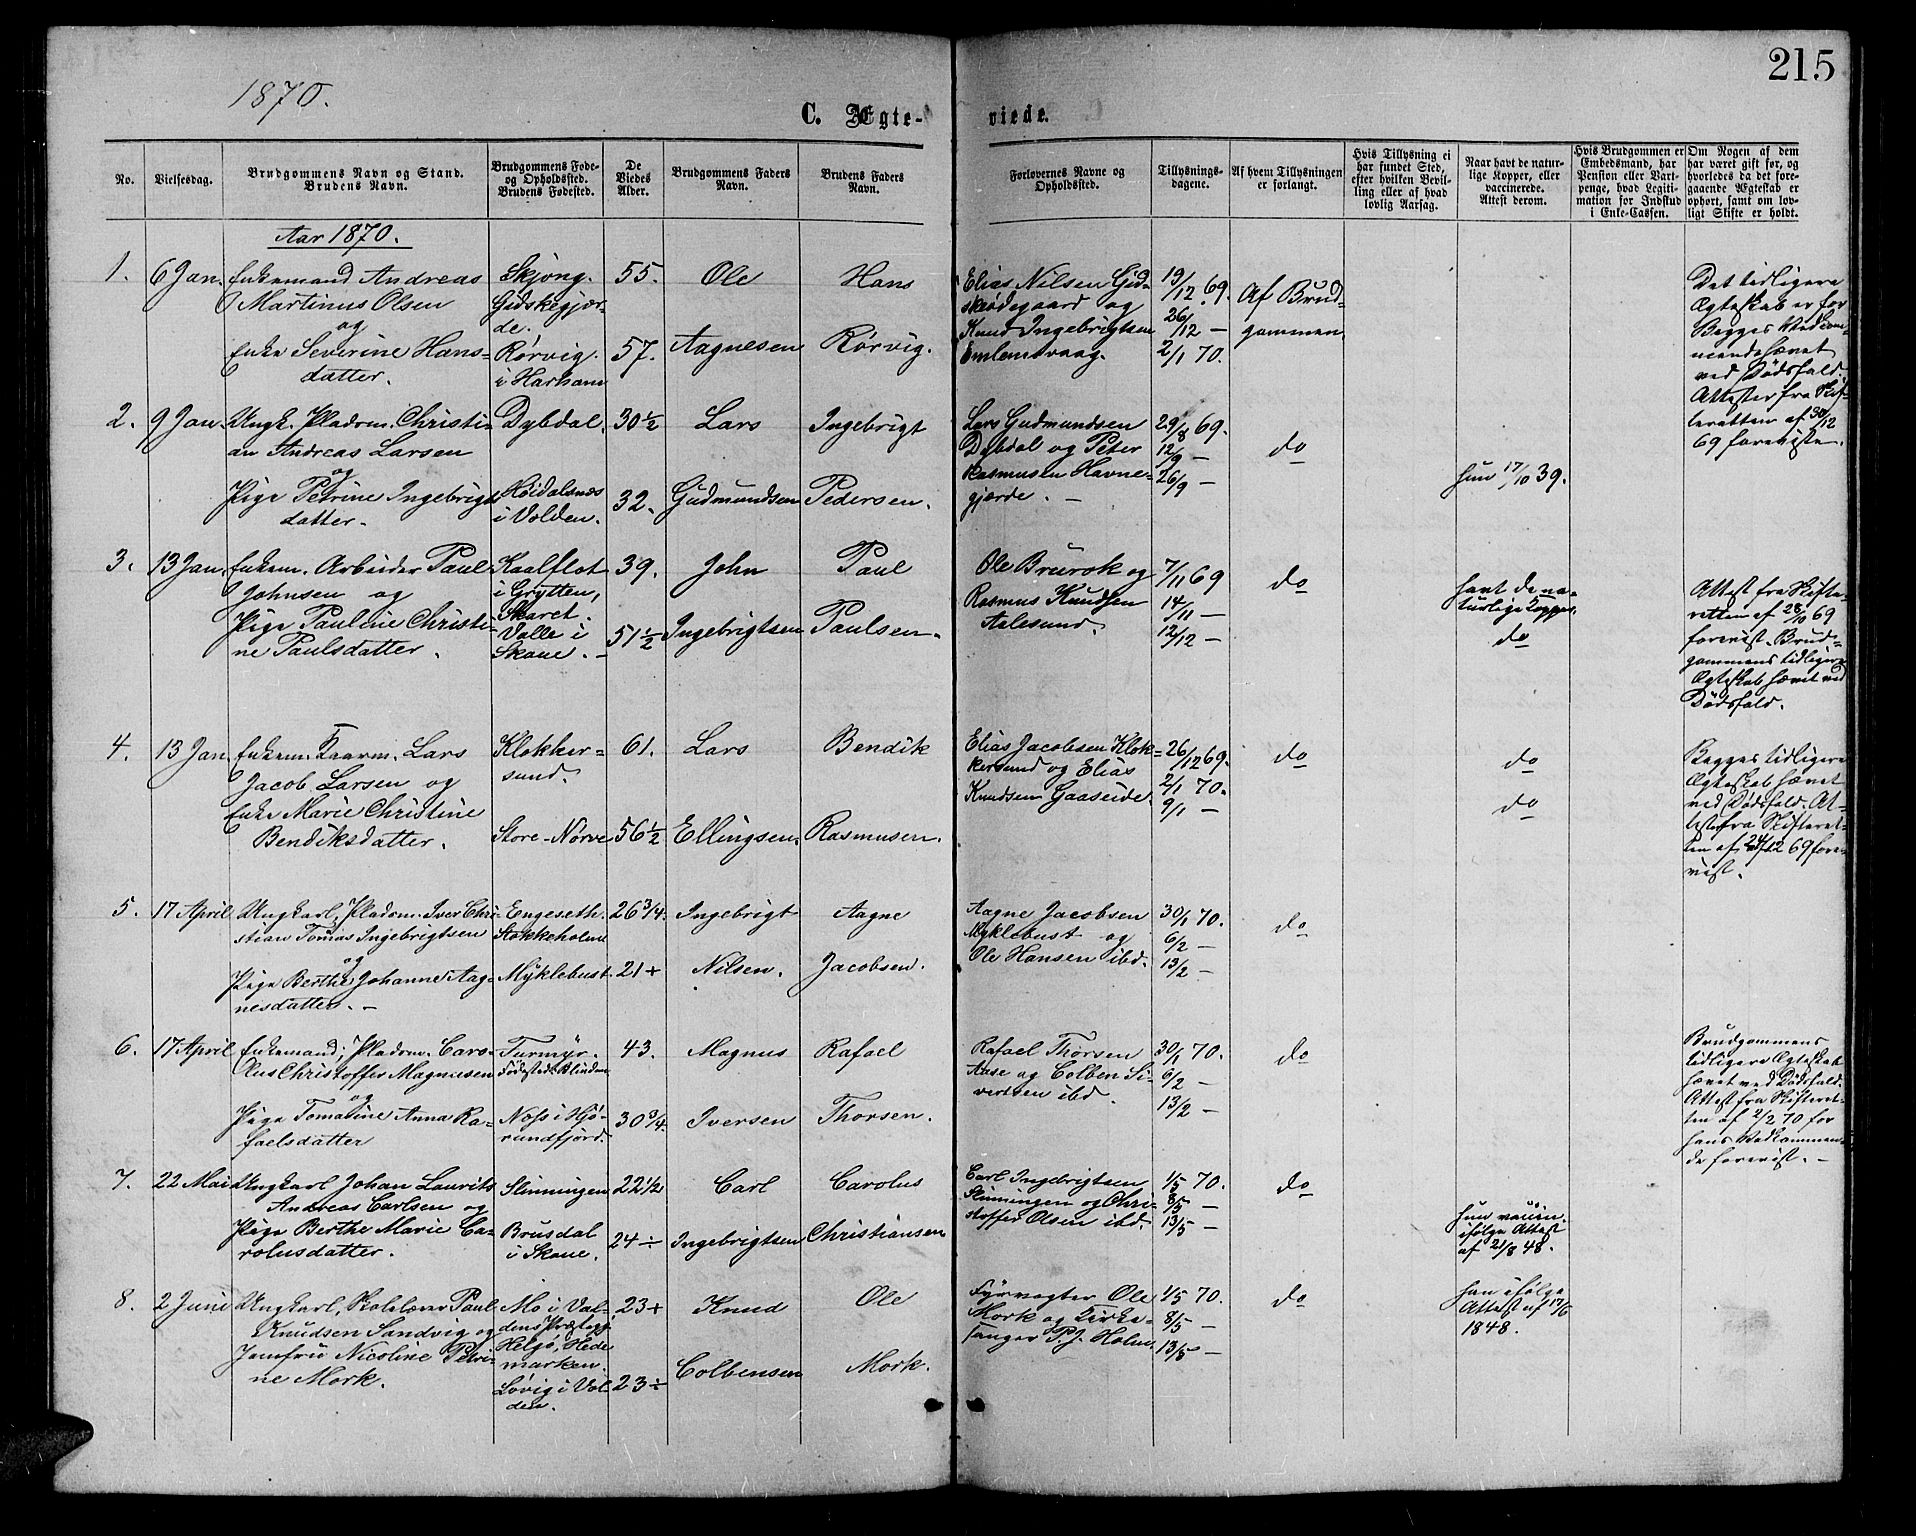 215
1870.
C. Ægte-
viede.
No.
Vielsesdag.
Brudgommens Navn og Stand.
Brudens Navn.
Brudgommens Føde-
og Opholdssted.
Brudens Fødested.
De
Viedes
Alder.
Brudgommens Faders
Navn.
Brudens Faders
Navn.
Forlovernes Navne og
Opholdssted.
Tillysnings-
dagene.
Af hvem Tillysningen
er forlangt.
Hvis Tillysning ei
har fundet Sted,
efter hvilken Bevil-
ling eller af hvad
lovlig Aarsag.
Naar havt de natur-
lige Kopper, eller
vaccinerede.
Attest derom.
Hvis Brudgommen er
Embedsmand, har
Pension eller Vart-
penge, hvad Legiti-
mation for Indskud
i Enke-Cassen.
Om Nogen af dem
har været gift før, og
hvorledes da det fore-
gaaende Ægteskab er
ophørt, samt om lov-
ligt Skifte er holdt.
Aar 1870.
1.
6 Jan.
Enkemand Andreas
Martinus Olsen
og
Enke Severine Hans-
datter.
Skjong.
Gidskegjær-
de.
Rørvig
i Harham
55.
57.
Ole
Aagnesen
Hans
Rørvig.
Elias Nilsen Gid-
skødegaard og
Knud Ingebrigtsen
Emlemsvaag.
19/12 69.
26/12 —
2/1 70.
Af Brud-
gommen
Det tidligere
Ægteskab er for
Begges Vedkom-
mende hævet
ved Dødsfald.
Attester fra Skif-
teretten af 30/12
69 foreviste.
2.
9 Jan.
Ungk. Pladsm. Christi-
an Andreas Larsen
og
Pige Petrine Ingebrigts
datter.
Dybdal.
Høidalsnes
i Volden.
30 1/2
32.
Lars
Gudmundsen
Ingebrigt
Pedersen.
Lars Gudmundsen
Dybdal og Peter
Rasmusen Havne-
gjærde. —
29/8 69.
12/9 —
26/9 —
do
hun 17/10 39.
3.
13 Jan.
Enkem. Arbeider Paul
Johnsen og
Pige Pauline Christi-
ne Paulsdatter.
Kaalflot
i Grytten,
Skaret.
Valle i
Skoue. —
39.
51 1/2
John
Ingebrigtsen
Paul
Paulsen.
Ole Brurok og
Rasmus Knudsen
Aalesund.
7/11 69
14/11 —
12/12 —
do
havt de na-
turlige Kopper.
do
Attest fra Skifte-
retten af 28/10 69
forevist. Brud-
gommens tidligere
Ægteskab hævet ved
Dødsfald.
4.
13 Jan.
Enkem. Kaarm. Lars
Jacob Larsen og
Enke Marie Christine
Bendiksdatter.
Klokker-
sund.
Store-Nørve
61.
56 1/2
Lars
Ellingsen.
Bendik
Rasmusen.
Elias Jacobsen Klok-
kersund og Elias
Knudsen Gaaseide.
26/12 69.
2/1 70.
9/1 —
do
do
do
Begges tidligere
Ægteskab hævet
ved Dødsfald. At-
test fra Skifteret-
ten af 24/12 69 fore-
vist.
5.
17 April
Ungkarl, Pladsm. Iver Chri-
stian Tomas Ingebrigtsen
og
Pige Berthe Johanne Aag-
nesdatter. —
Engeseth.
Stokkeholm
Myklebust
26 3/4
21 +
Ingebrigt
Nilsen.
Aagne
Jacobsen.
Aagne Jacobsen
Myklebust og
Ole Hansen ibd.
30/1 70.
6/2 —
13/2 —
do
6.
17 April
Enkemand, Pladsm. Cars-
Olus Christoffer Magnusen
og
Pige Tomaline Anna Ra-
faelsdatter
Turmyr.
Fødested: Blindem
Noss i Hjø-
rundfjord.
43.
30 3/4.
Magnus
Iversen
Rafael
Thorsen.
Rafael Thorsen
Aase og Colben Si-
vertsen ibd.
30/1 70.
6/2 —
13/2 —
do
Brudgommens
tidligere Ægteskab
hævet ved Dødsfald.
Attest fra Skifteret-
ten af 2/2 70 for
hans Vedkommen-
de forevist. —
7.
22 Mai
Ungkarl Johan Laurits
Andreas Carlsen og
Pige Berthe Marie Ca-
rolusdatter.
Slinningen
Brusdal
i Skoue.
22 1/2
24 ÷
Carl
Ingebrigtsen
Carolus
Christiansen
Carl Ingebrigtsen
Slinningen og Chri-
stoffer Olsen ibd.
1/5 70.
8/5 —
13/5 —
do
hun vaccin.
ifølge Attest
af 21/8 48.
8.
2 Juni
Ungkarl, Skolelærer Paul
Knudsen Sandvig og
Jomfru Nicoline Petri-
ne Mork.
Mo i Vol-
dens Præstegj.
Helgø, Hede-
marken.
Løvig i Vol-
den.
23 +
23 ÷
Knud
Colbensen
Ole
Mork.
Fyrvogter Ole
Mork og Kirke-
sanger P. J. Holm.
1/5 70.
8/5 —
13/5 —
do
han ifølge
Attest af 17/6
1848.